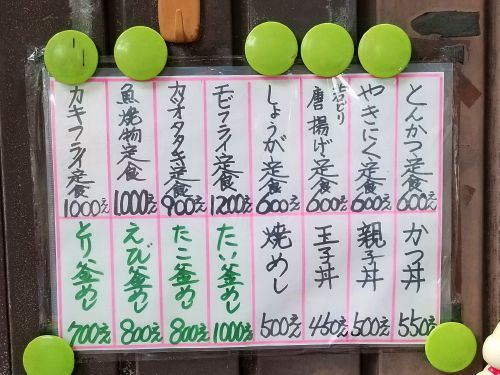 とんかつ定食 600え
やきにく定食 600え
若どり 唐揚げ定食 600え
しょうが定食 600え
エビフライ定食 1200え
カツオタタキ定食 900え
魚焼物定食 1,000え
カキフライ定食 1000え
かつ丼 550え
親子丼 500え
玉子丼 450え
焼めし 500え
たい釜めし 1000え
たこ釜めし 800え
えび釜めし 800え
とり釜めし 700え